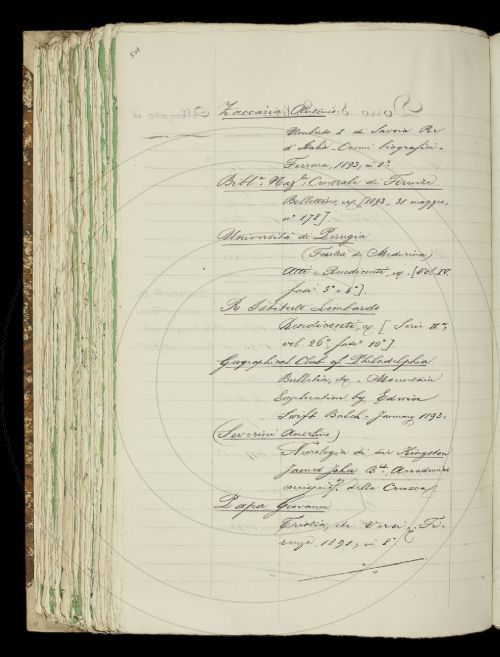 Zaccaria Antonio
Umberto I di Savoia Re
d'Italia - Cenni biografici -
Ferrara, 1893, in 8º.
Bibl.ª Naz.le Centrale di Firenze.
Bollettino, ec. [1893, 31 maggio,
nº 178].
Università di Perugia
(Facoltà di Medicina)
Atti e Rendiconti, ec. [Vol. IV
fasc. 3º e 4º].
R. Istituto Lombardo
Rendiconti, ec. [Serie IIª,
vol. 26º, fasc. 10º].
Geographical Club of Philadelphia
Bulletin, etc. - Mountain
Exploration by Edwin
Swift Balch - January 1893.
(Severini Antelmo)
Necrologia di Kingston
James John B.t Accademico
della Crusca
Papa Giovanni
Versi - Fi-
renze, 1892, in 8º